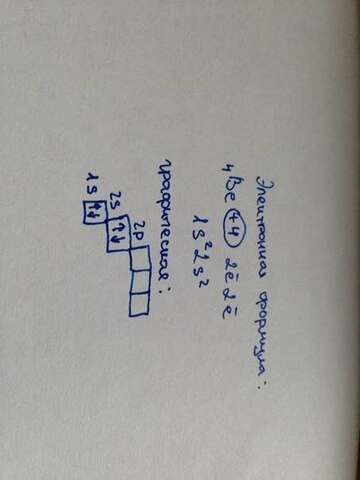 Электронная формула:
₄Be +4 2ē 2ē
1s²2s²
графическая:
2p
2s ↑↓
1s ↑↓